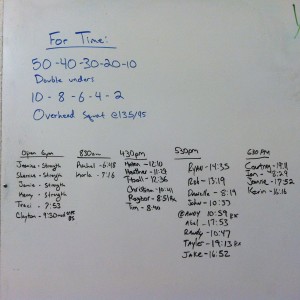 For Time:
50-40-30-20-10
Double unders
10 - 8 - 6 - 4 - 2
Overhead Squat @135/95
Open Gym
Jessica - Strength
Sherica - Strength
Jamie - Strength
Henry - Strength
Traci - 7:53
Clayton - 9:50
830am
Rachel - 6:48
Karla - 7:16
430pm
Helen - 12:10
Heather - 11:27
T-ball - 12:36
Christian - 10:41
Raybor - 8:51 Rx
Tim - 8:40
530pm
Ryan - 14:35
Rob - 13:19
Danielle - 8:19
John - 10:37
@ANDY 10:59 RX
Abel - 17:53
Randy - 10:47
Taylor - 19:13 RX
Jake - 16:52
630 PM
Courtney - 
Ian - 8:29
Jeanne - 17:52
Kevin - 16:16